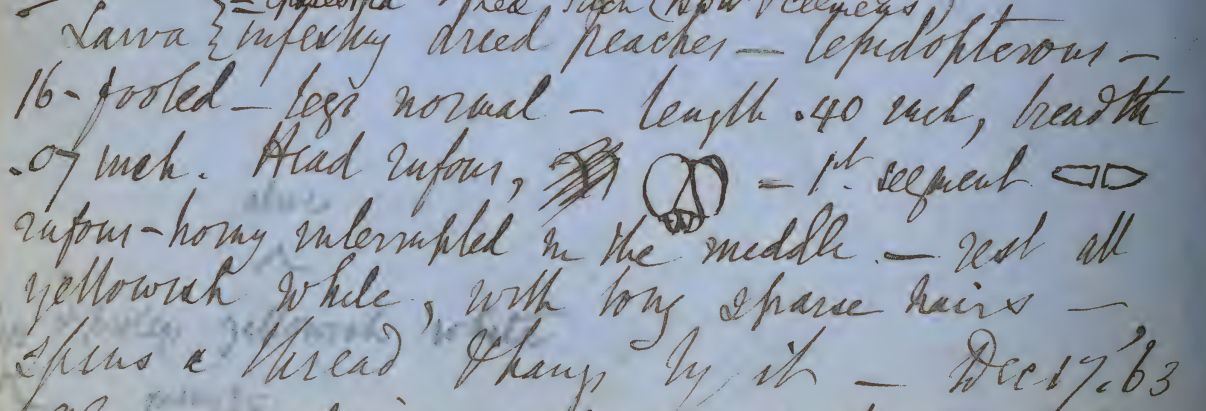 Larva } infesting dried peaches — lepidopterous —
16-footed — legs normal — length .40 inch, breadth
.07 inch. Head rufous, = 1st. segment
rufous-horny interrupted in the middle. — rest all
yellowish white, with long sparse hairs —
spins a thread & hangs by it — Dec 17, '63